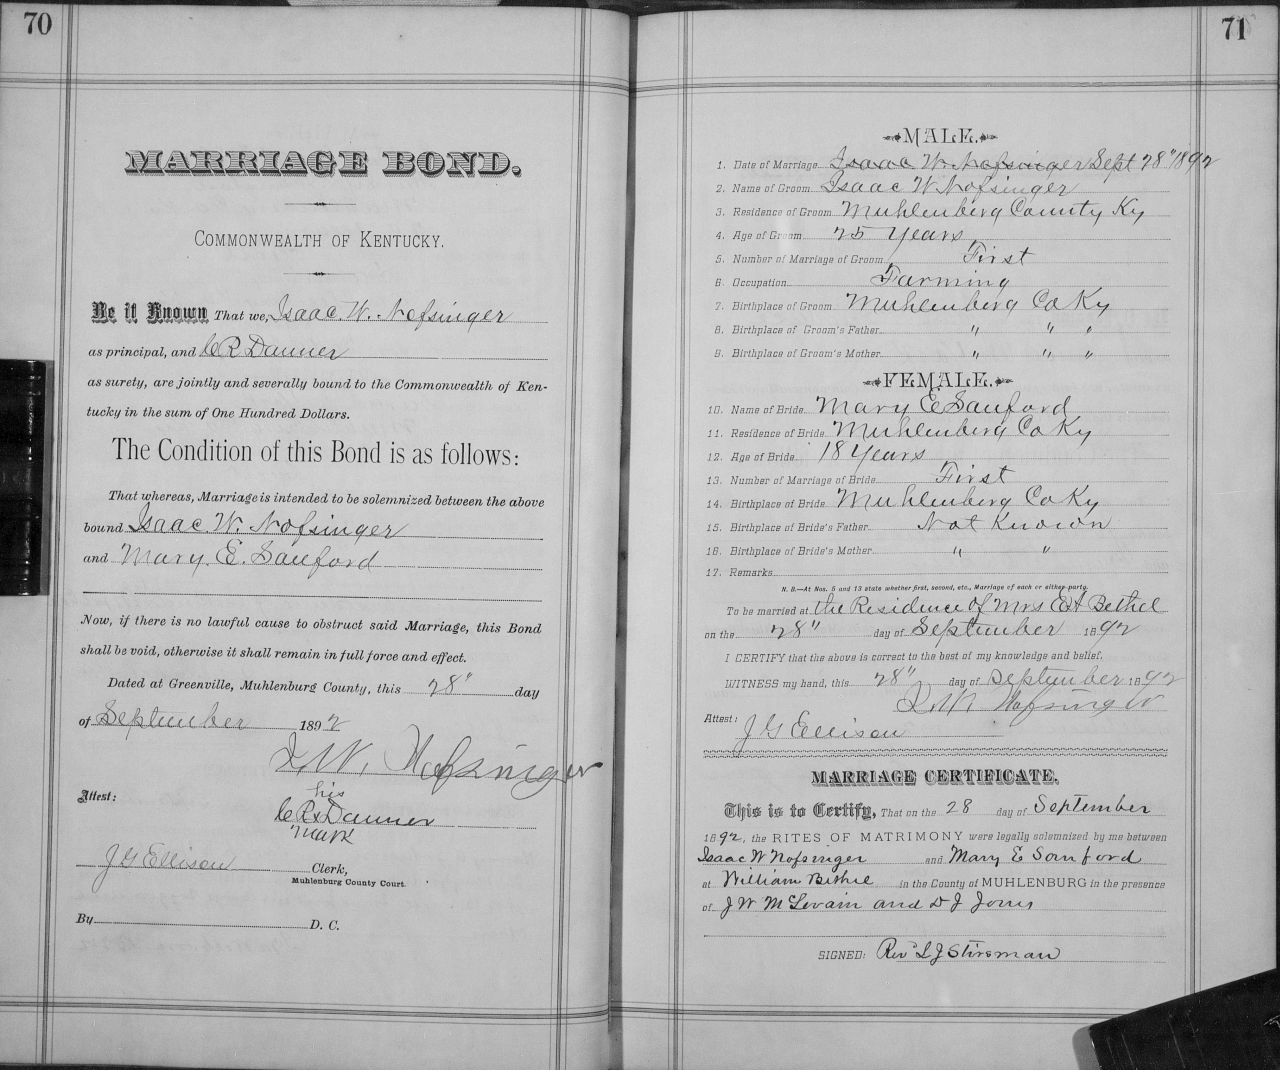 70
MARRIAGE BOND.
COMMONWEALTH OF KENTUCKY.
Be it Known That we, Isaac. W. Nofsinger
as principal, and C R Danner
as surety, are jointly and severally bound to the Commonwealth of Ken-
tucky in the sum of One Hundred Dollars.
The Condition of this Bond is as follows:
That whereas, Marriage is intended to be solemnized between the above
bound Isaac. W. Nofsinger
and Mary. E. Sanford
Now, if there is no lawful cause to obstruct said Marriage, this Bond
shall be void, otherwise it shall remain in full force and effect.
Dated at Greenville, Muhlenburg County, this 28" day
of September 1892
I. W. Nofsinger
Attest: his
C R x Danner
mark
J G Ellison Clerk,
Muhlenburg County Court.
By D. C.
71
MALE.
1. Date of Marriage Isaac W. Nofsinger Sept 28" 1892
2. Name of Groom Isaac W Nofsinger
3. Residence of Groom Muhlenberg County Ky
4. Age of Groom 25 Years
5. Number of Marriage of Groom First
6. Occupation Farming
7. Birthplace of Groom Muhlenberg Co Ky
8. Birthplace of Groom's Father " " "
9. Birthplace of Groom's Mother " " "
FEMALE.
10. Name of Bride Mary E Sanford
11. Residence of Bride Muhlenberg Co Ky
12. Age of Bride 18 Years
13. Number of Marriage of Bride First
14. Birthplace of Bride Muhlenberg Co Ky
15. Birthplace of Bride's Father Not Known
16. Birthplace of Bride's Mother " "
17. Remarks
N. B.—At Nos. 5 and 13 state whether first, second, etc., Marriage of each or either party.
To be married at the Residence of Mrs Bethel
on the 28" day of September 1892
I CERTIFY that the above is correct to the best of my knowledge and belief.
WITNESS my hand, this 28" day of September 1892
I. W. Nofsinger
Attest: J G Ellison
MARRIAGE CERTIFICATE.
This is to Certify, That on the 28 day of September
1892, the RITES OF MATRIMONY were legally solemnized by me between
Isaac W Nofsinger and Mary E Sanford
at William Bethel in the County of MUHLENBURG in the presence
of J W McLevain and D J Jones
SIGNED: Rev L J Stirsman